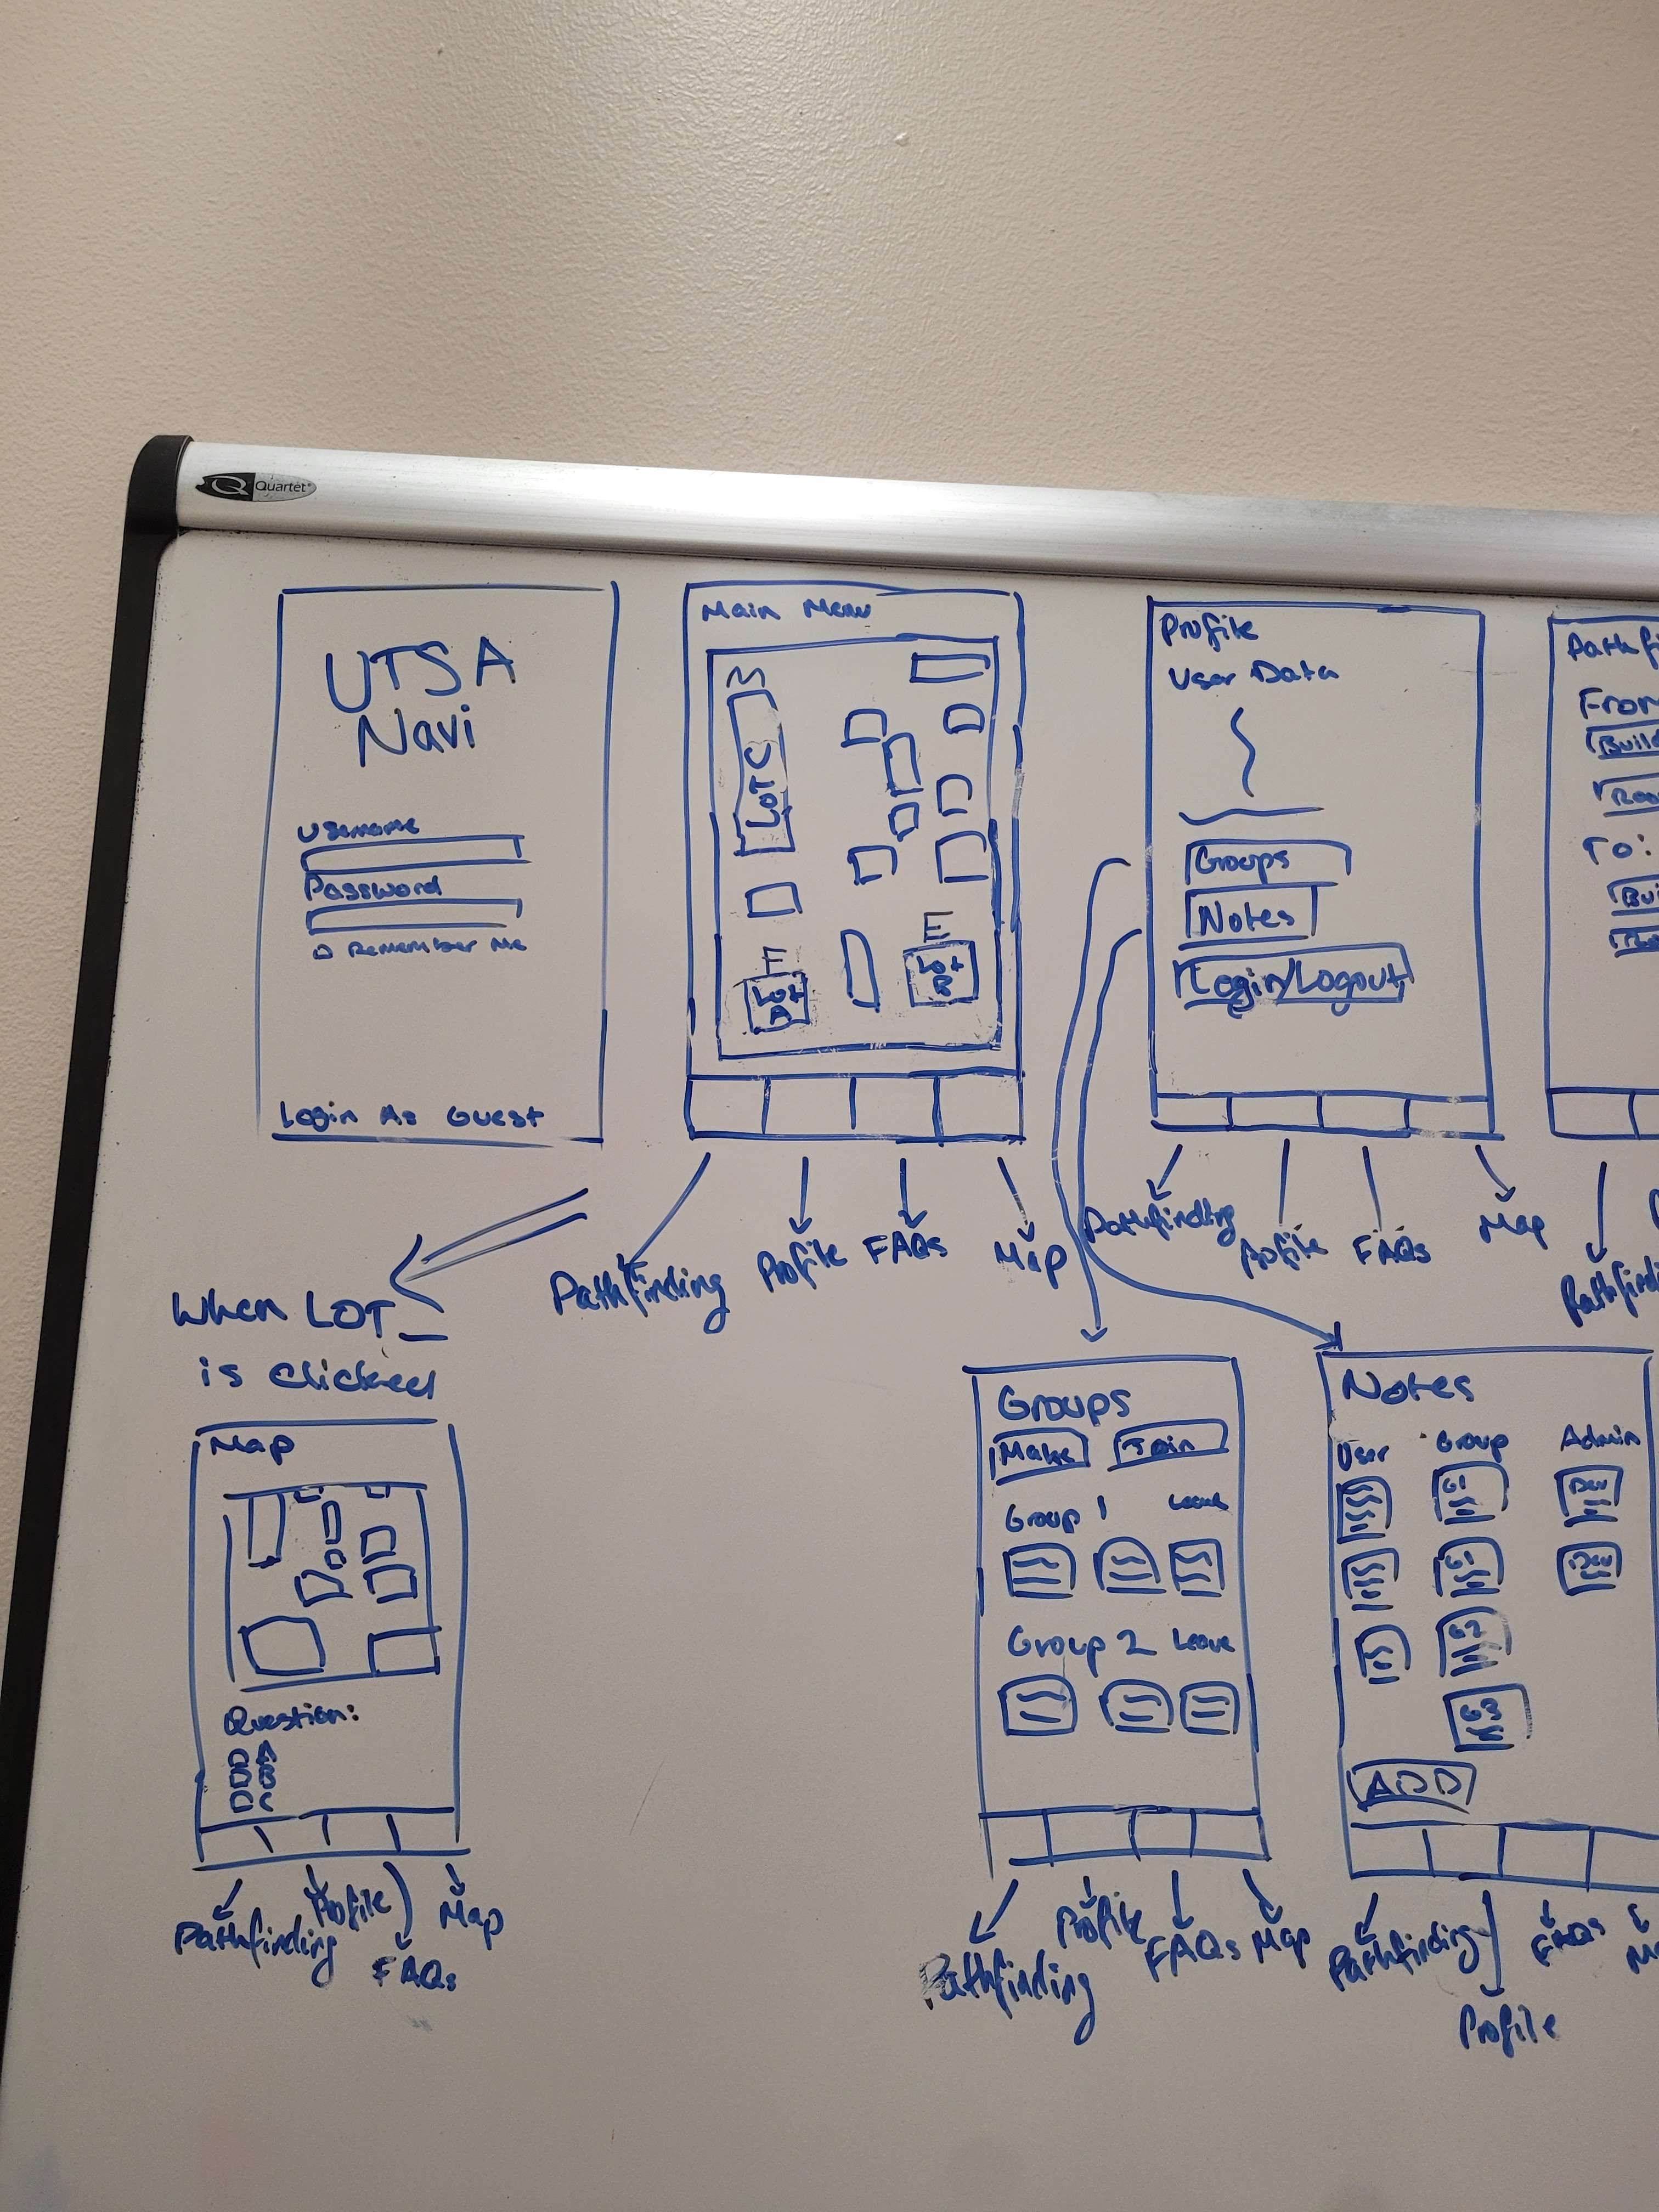 Quartet
UTSA
Navi
Username
Password
Remember Me
Login As Guest
Main Menu
LOT C
E
Lot
B
Lot
A
Pathfinding
Profile
FAQs
Map
Profile
User Data
Groups
Notes
Login/Logout
Pathfinding
Profile
FAQs
Map
From
To:
When LOT _
is clicked
Map
Question:
A
B
C
Pathfinding
Profile
FAQs
Map
Groups
Make
Join
Group 1
Leave
Group 2
Leave
Pathfinding
Profile
FAQs
Map
Notes
User
Group
Admin
ADD
Pathfinding
Profile
FAQs